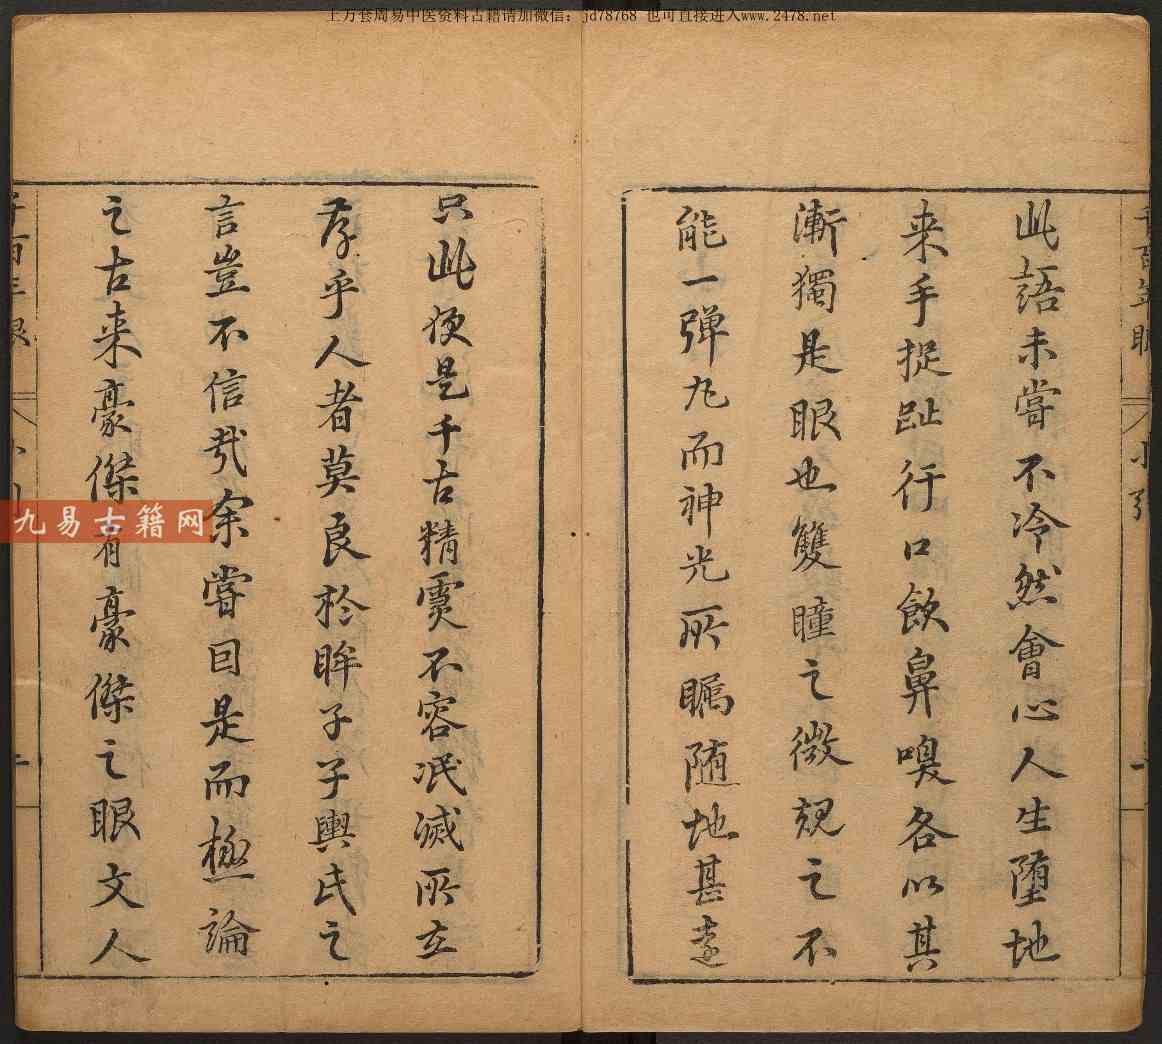 上万套周易中医资料古籍请加微信：jd78768 也可直接进入www.2478.net
千百年眼 小引 一
此語未嘗不冷然會心人生墮地
来手捉趾行口飲鼻嗅各以其
漸獨是眼也雙瞳之微規之不
能一彈丸而神光所矚随地甚遠
只此便是千古精靈不容泯滅所在
存乎人者莫良於眸子子輿氏之
言豈不信哉余嘗因是而極論
之古来豪傑有豪傑之眼文人
千百年眼 小引
九易古籍网